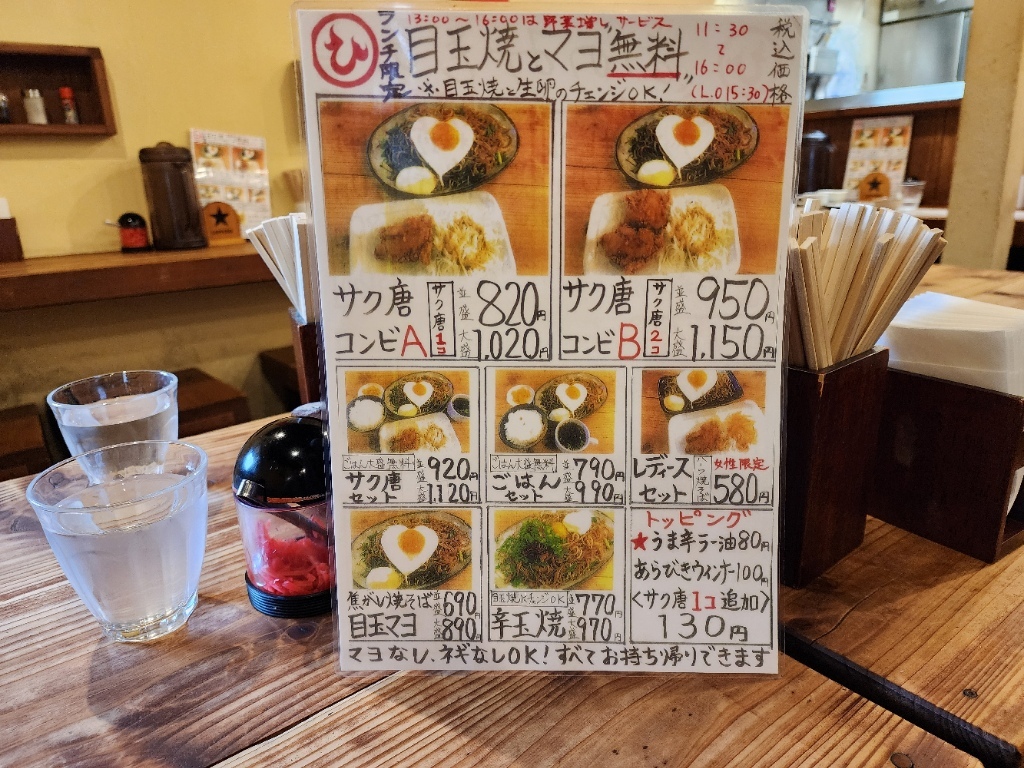 ひ
ランチ限定
13:00～16:00は野菜増しサービス
目玉焼とマヨ無料
※目玉焼と生卵のチェンジOK!
11:30
て
16:00
(L.O15:30)
税込価格
サク唐
コンビA
サク唐1コ
並盛 820円
大盛 1,020円
サク唐
コンビB
サク唐2コ
並盛 950円
大盛 1,150円
ごはん大盛無料
サク唐
セット
並盛 920円
大盛 1,120円
ごはん大盛無料
ごはん
セット
並盛 790円
大盛 990円
レディース
セット
女性限定
580円
焦がし焼そば
目玉マヨ
並盛 690円
大盛 890円
目玉焼にチェンジOK
辛玉焼
並盛 770円
大盛 970円
トッピング
★うま辛ラー油80円
あらびきウィンナー100円
〈サク唐1コ追加〉
130円
マヨなし、ネギなしOK!すべてお持ち帰りできます